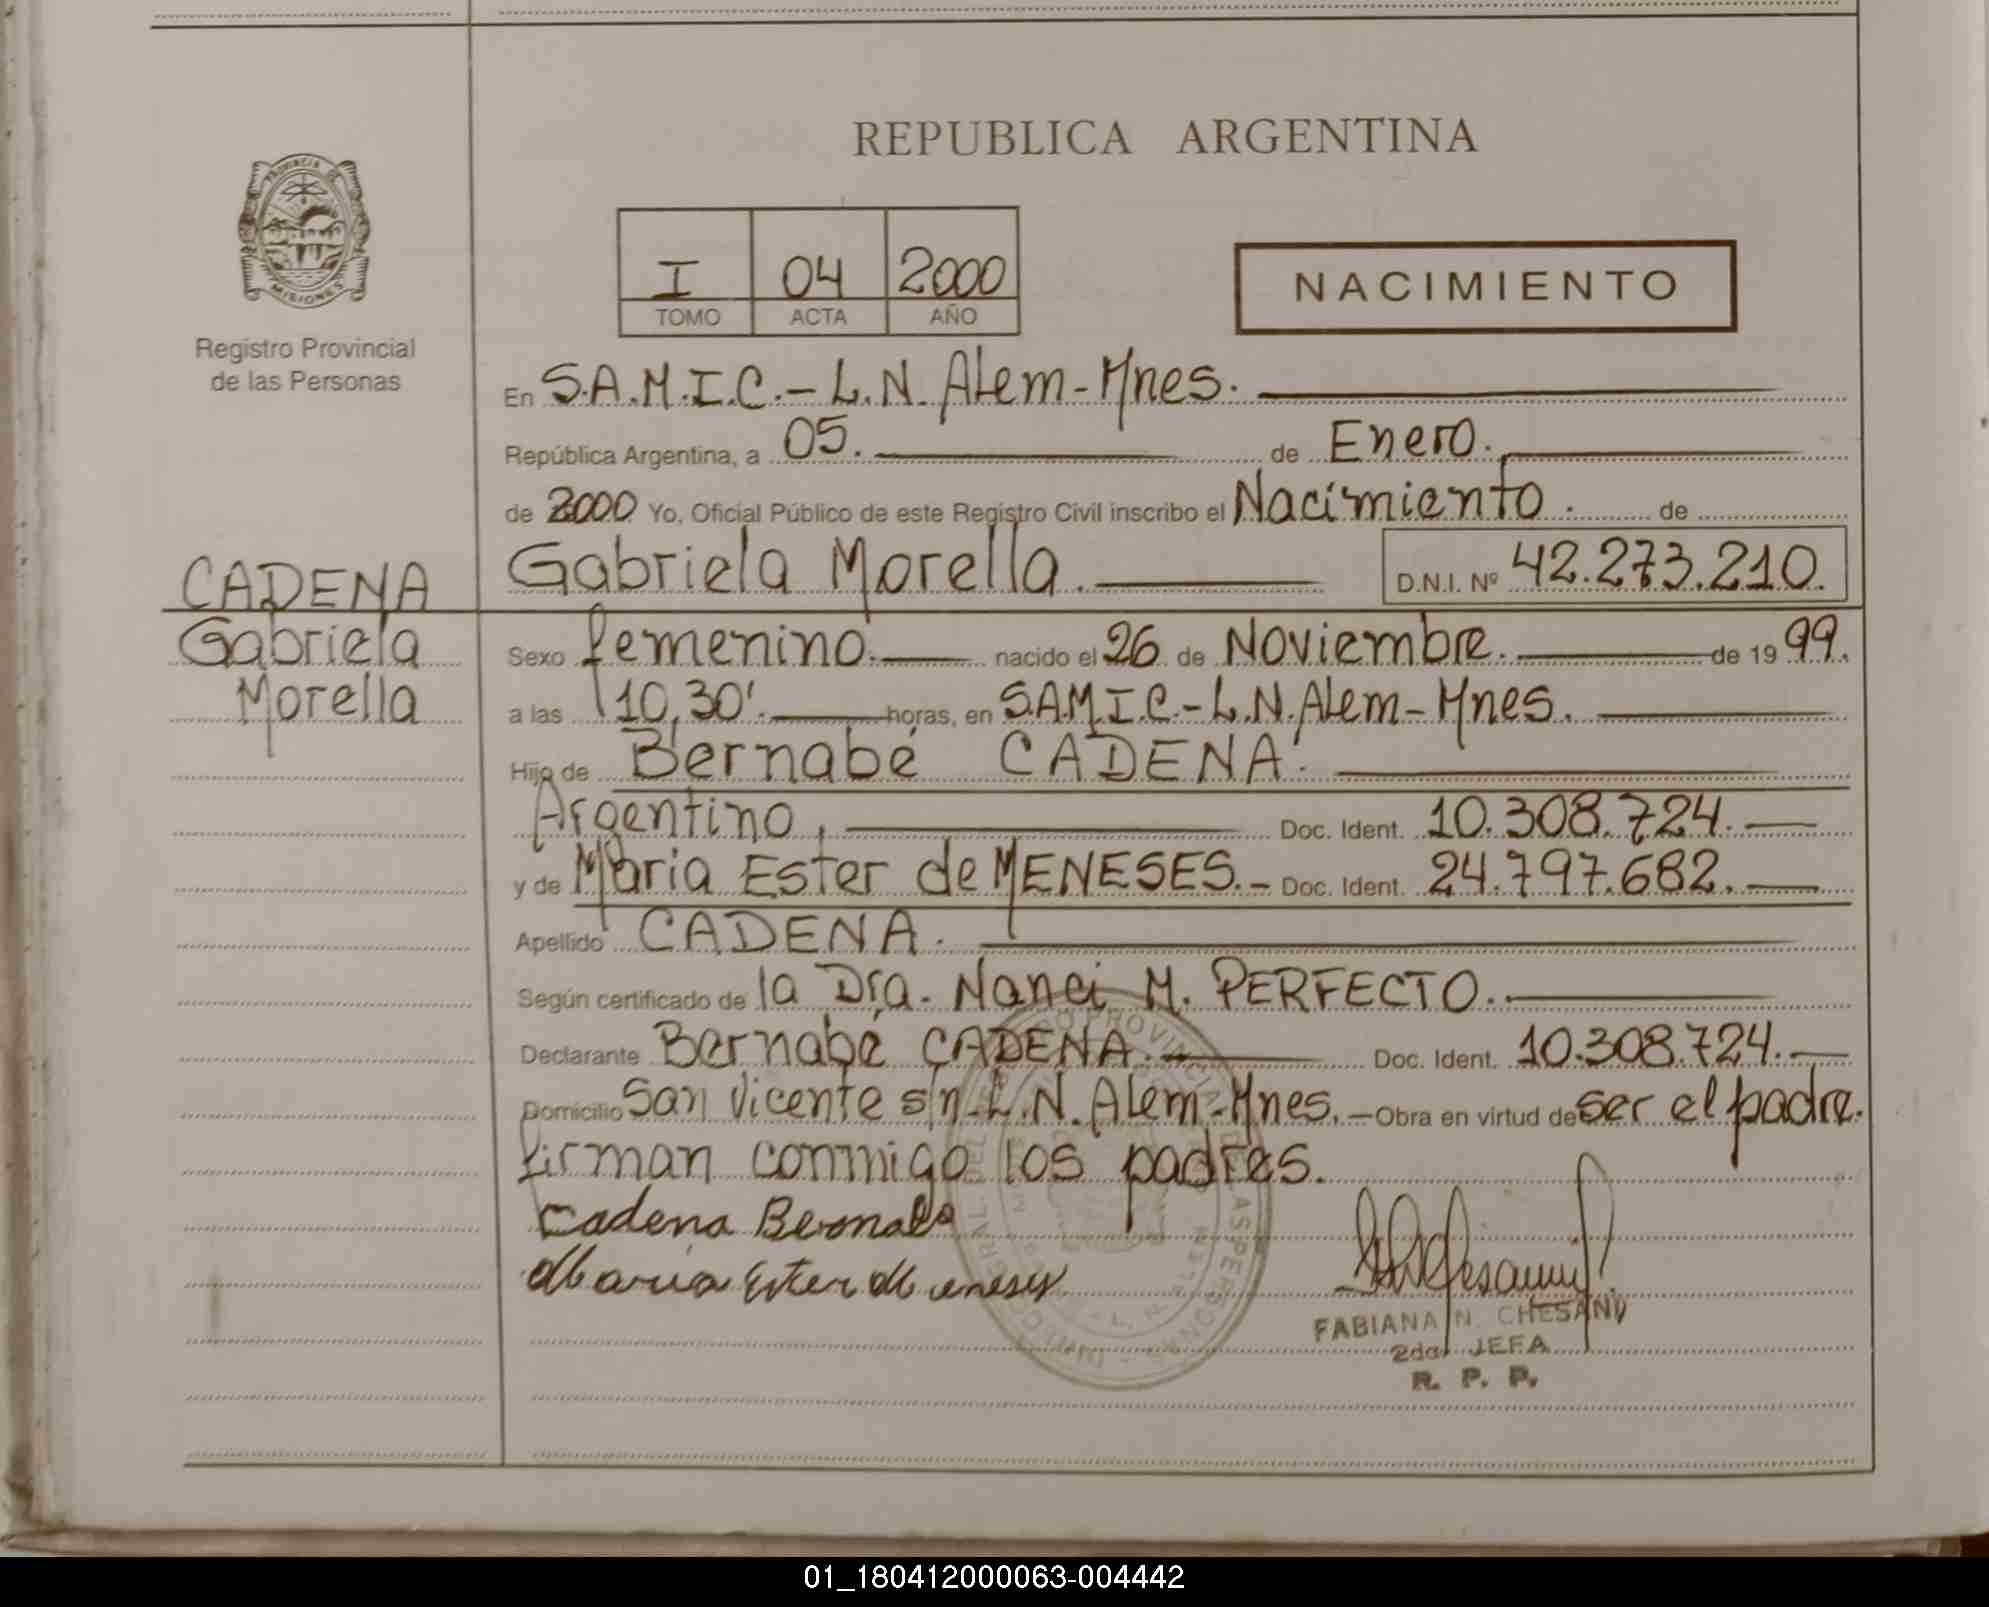 REPUBLICA ARGENTINA
PROVINCIA DE
MISIONES
Registro Provincial
de las Personas
I 04 2000
TOMO ACTA AÑO
NACIMIENTO
En S.A.M.I.C.-L.N.Alem-Mnes.
República Argentina, a 05. de Enero.
de 2000 Yo, Oficial Público de este Registro Civil inscribo el Nacimiento. de
Gabriela Morella. D.N.I. Nº 42.273.210.
CADENA
Gabriela
Morella
Sexo femenino. nacido el 26 de Noviembre. de 1999.
a las 10,30'. horas, en S.A.M.I.C.-L.N.Alem-Mnes.
Hijo de Bernabé CADENA.
Argentino, Doc. Ident. 10.308.724.
y de María Ester de MENESES.- Doc. Ident. 24.797.682.
Apellido CADENA.
Según certificado de la Dra. Nanci M. PERFECTO.
Declarante Bernabé CADENA. Doc. Ident. 10.308.724.
Domicilio San Vicente s/n-L.N.Alem-Mnes.- Obra en virtud de ser el padre.
firman conmigo los padres.
Cadena Bernabe
Maria Ester Meneses
FABIANA N. CHESANI
2da. JEFA
R. P. P.
01_180412000063-004442